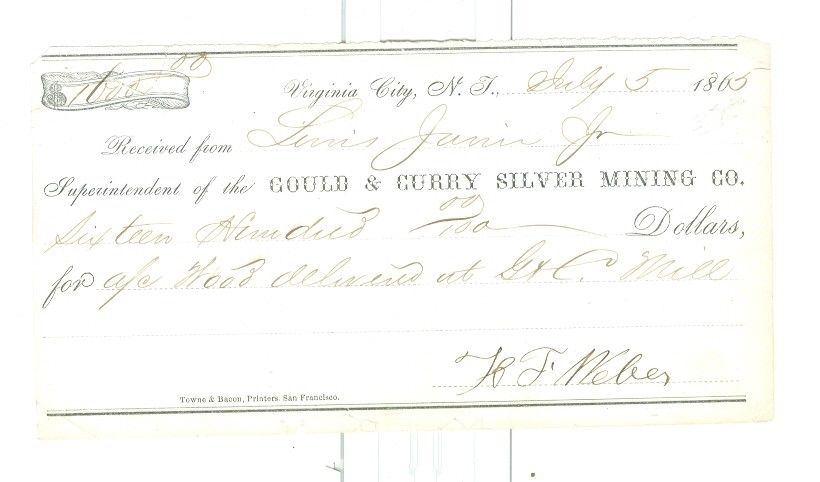 $1600 00
Virginia City, N. T., July 5 1865
Received from Louis Janin Jr
Superintendent of the GOULD & CURRY SILVER MINING CO.
Sixteen Hundred 00/100 Dollars,
for a/c Wood delivered at G & C. Mill
B F Weber
Towne & Bacon, Printers. San Francisco.